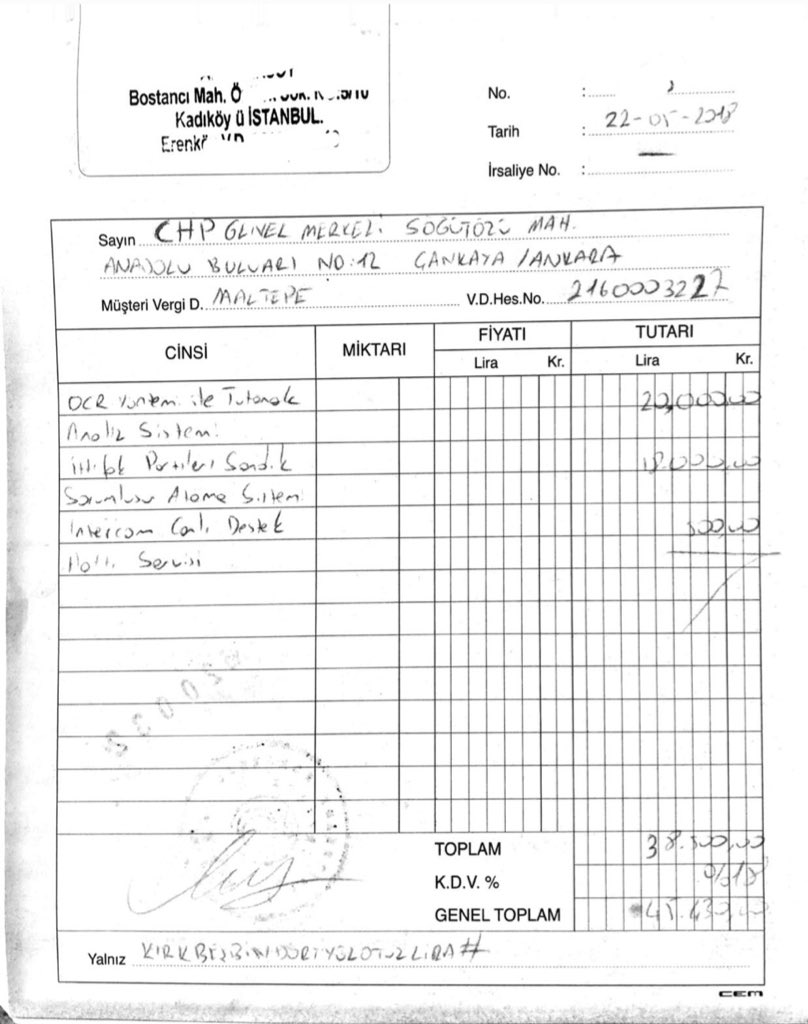 Bostancı Mah. Ö
Kadıköy ü İSTANBUL.
No. : 2
Tarih : 22-05-2018
İrsaliye No. : —
Sayın CHP GENEL MERKEZİ SÖĞÜTÖZÜ MAH.
ANADOLU BULVARI NO:12 ÇANKAYA / ANKARA
Müşteri Vergi D. MALTEPE V.D.Hes.No. 2160003227
CİNSİ MİKTARI FİYATI TUTARI
Lira Kr. Lira Kr.
OCR Yöntemi ile Tutanak 20,000,00
Analiz Sistemi
İttifak Partileri Sandık 18.000,00
Sorumlusu Atama Sistemi
Intercom Canlı Destek 500,00
Hattı Servisi
TOPLAM 38.500,00
K.D.V. % %18
GENEL TOPLAM 45.430,00
Yalnız KIRKBEŞBİNDÖRTYÜZOTUZLİRA#
CEM